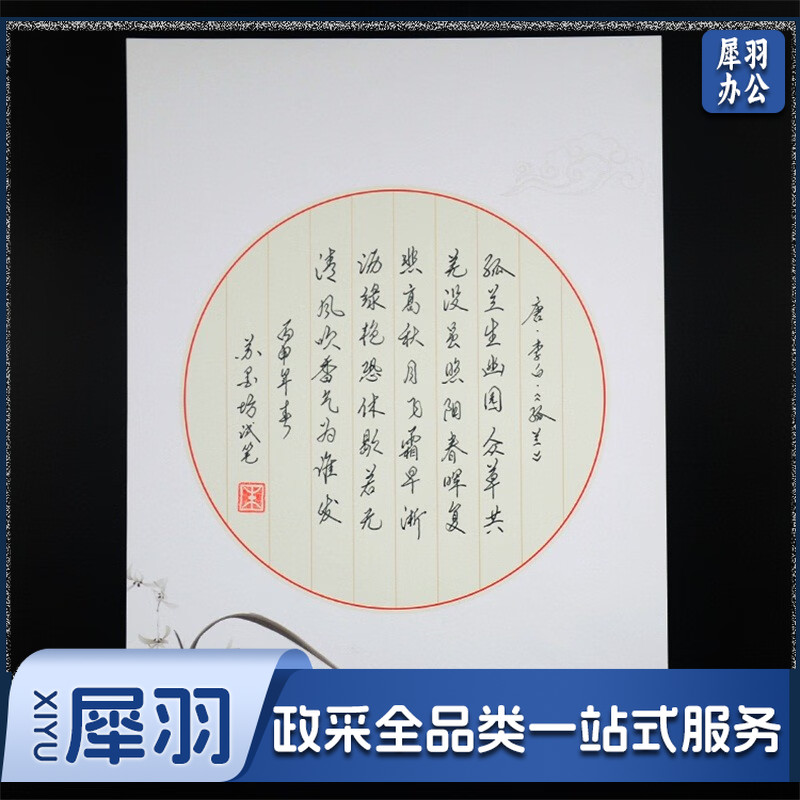 犀羽
办公
唐·李白·《孤兰》
孤兰生幽园众草共
芜没虽照阳春晖复
悲高秋月飞霜早淅
沥绿艳恐休歇若无
清风吹香气为谁发
丙申年春
苏墨坊试笔
XIYU
犀羽
政采全品类一站式服务